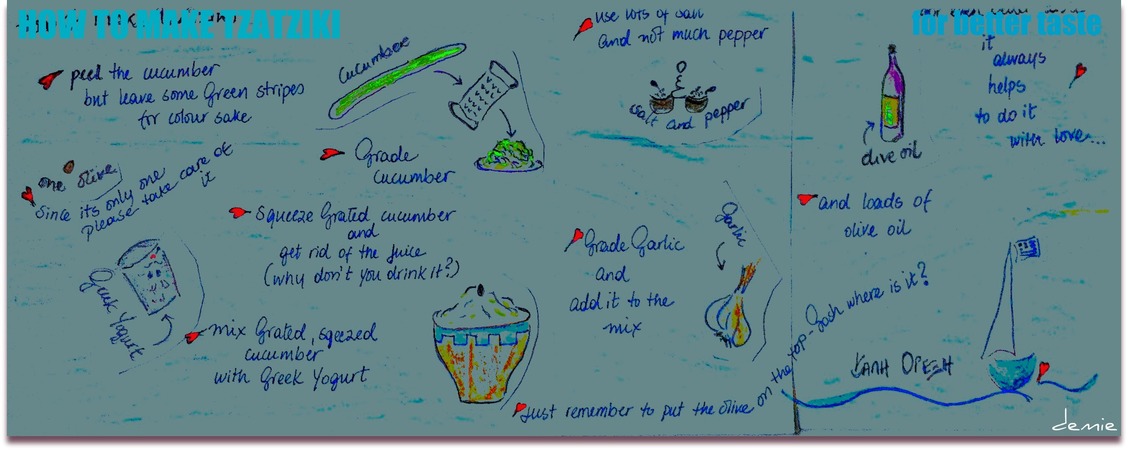 HOW TO MAKE TZATZIKI
for better taste
peel the cucumber
but leave some Green stripes
for colour sake
cucumbere
Grade
cucumber
one olive
Since its only one
please take care of
it
Squeeze Grated cucumber
and
get rid of the Juice
(why don't you drink it?)
Greek Yogurt
mix Grated, sqeezed
cucumber
with Greek Yogurt
use lots of salt
and not much pepper
salt and pepper
Garlic
Grade Garlic
and
add it to the
mix
Just remember to put the olive on the top - Gosh where is it?
olive oil
and loads of
olive oil
it
always
helps
to do it
with love...
ΚΑΛΗ ΟΡΕΞΗ
demie